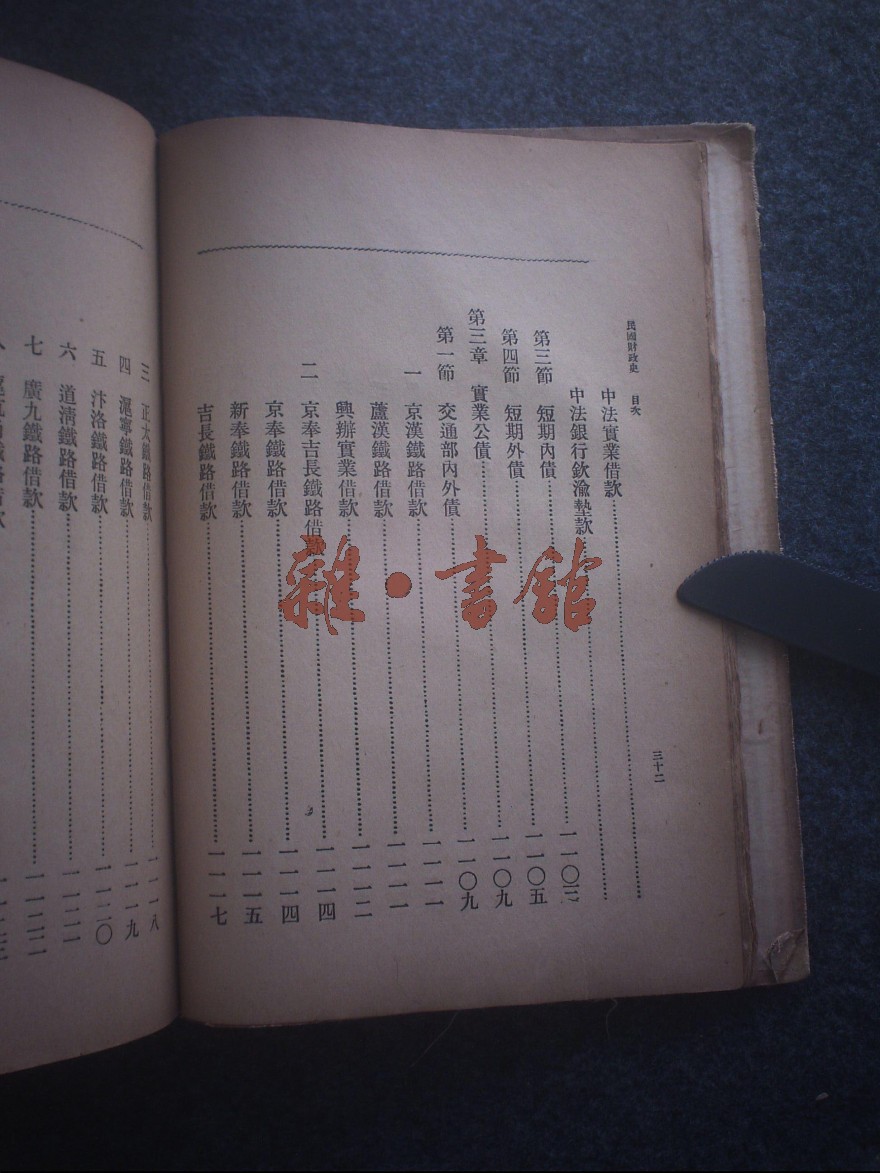 民國財政史 目次 三十二
中法實業借款……
中法銀行欽渝墊款……
第三節 短期內債……一一〇三
第四節 短期外債……一一〇五
第三章 實業公債……一一〇九
第一節 交通部內外債……一一〇九
一 京漢鐵路借款……一一一一
蘆漢鐵路借款……一一一一
興辦實業借款……一一一二
二 京奉吉長鐵路借款……一一一四
京奉鐵路借款……一一一四
新奉鐵路借款……一一一五
吉長鐵路借款……一一一七
三 正太鐵路借款……一一一八
四 滬寧鐵路借款……一一一九
五 汴洛鐵路借款……一一二〇
六 道清鐵路借款……一一二一
七 廣九鐵路借款……一一二二
雜·書館